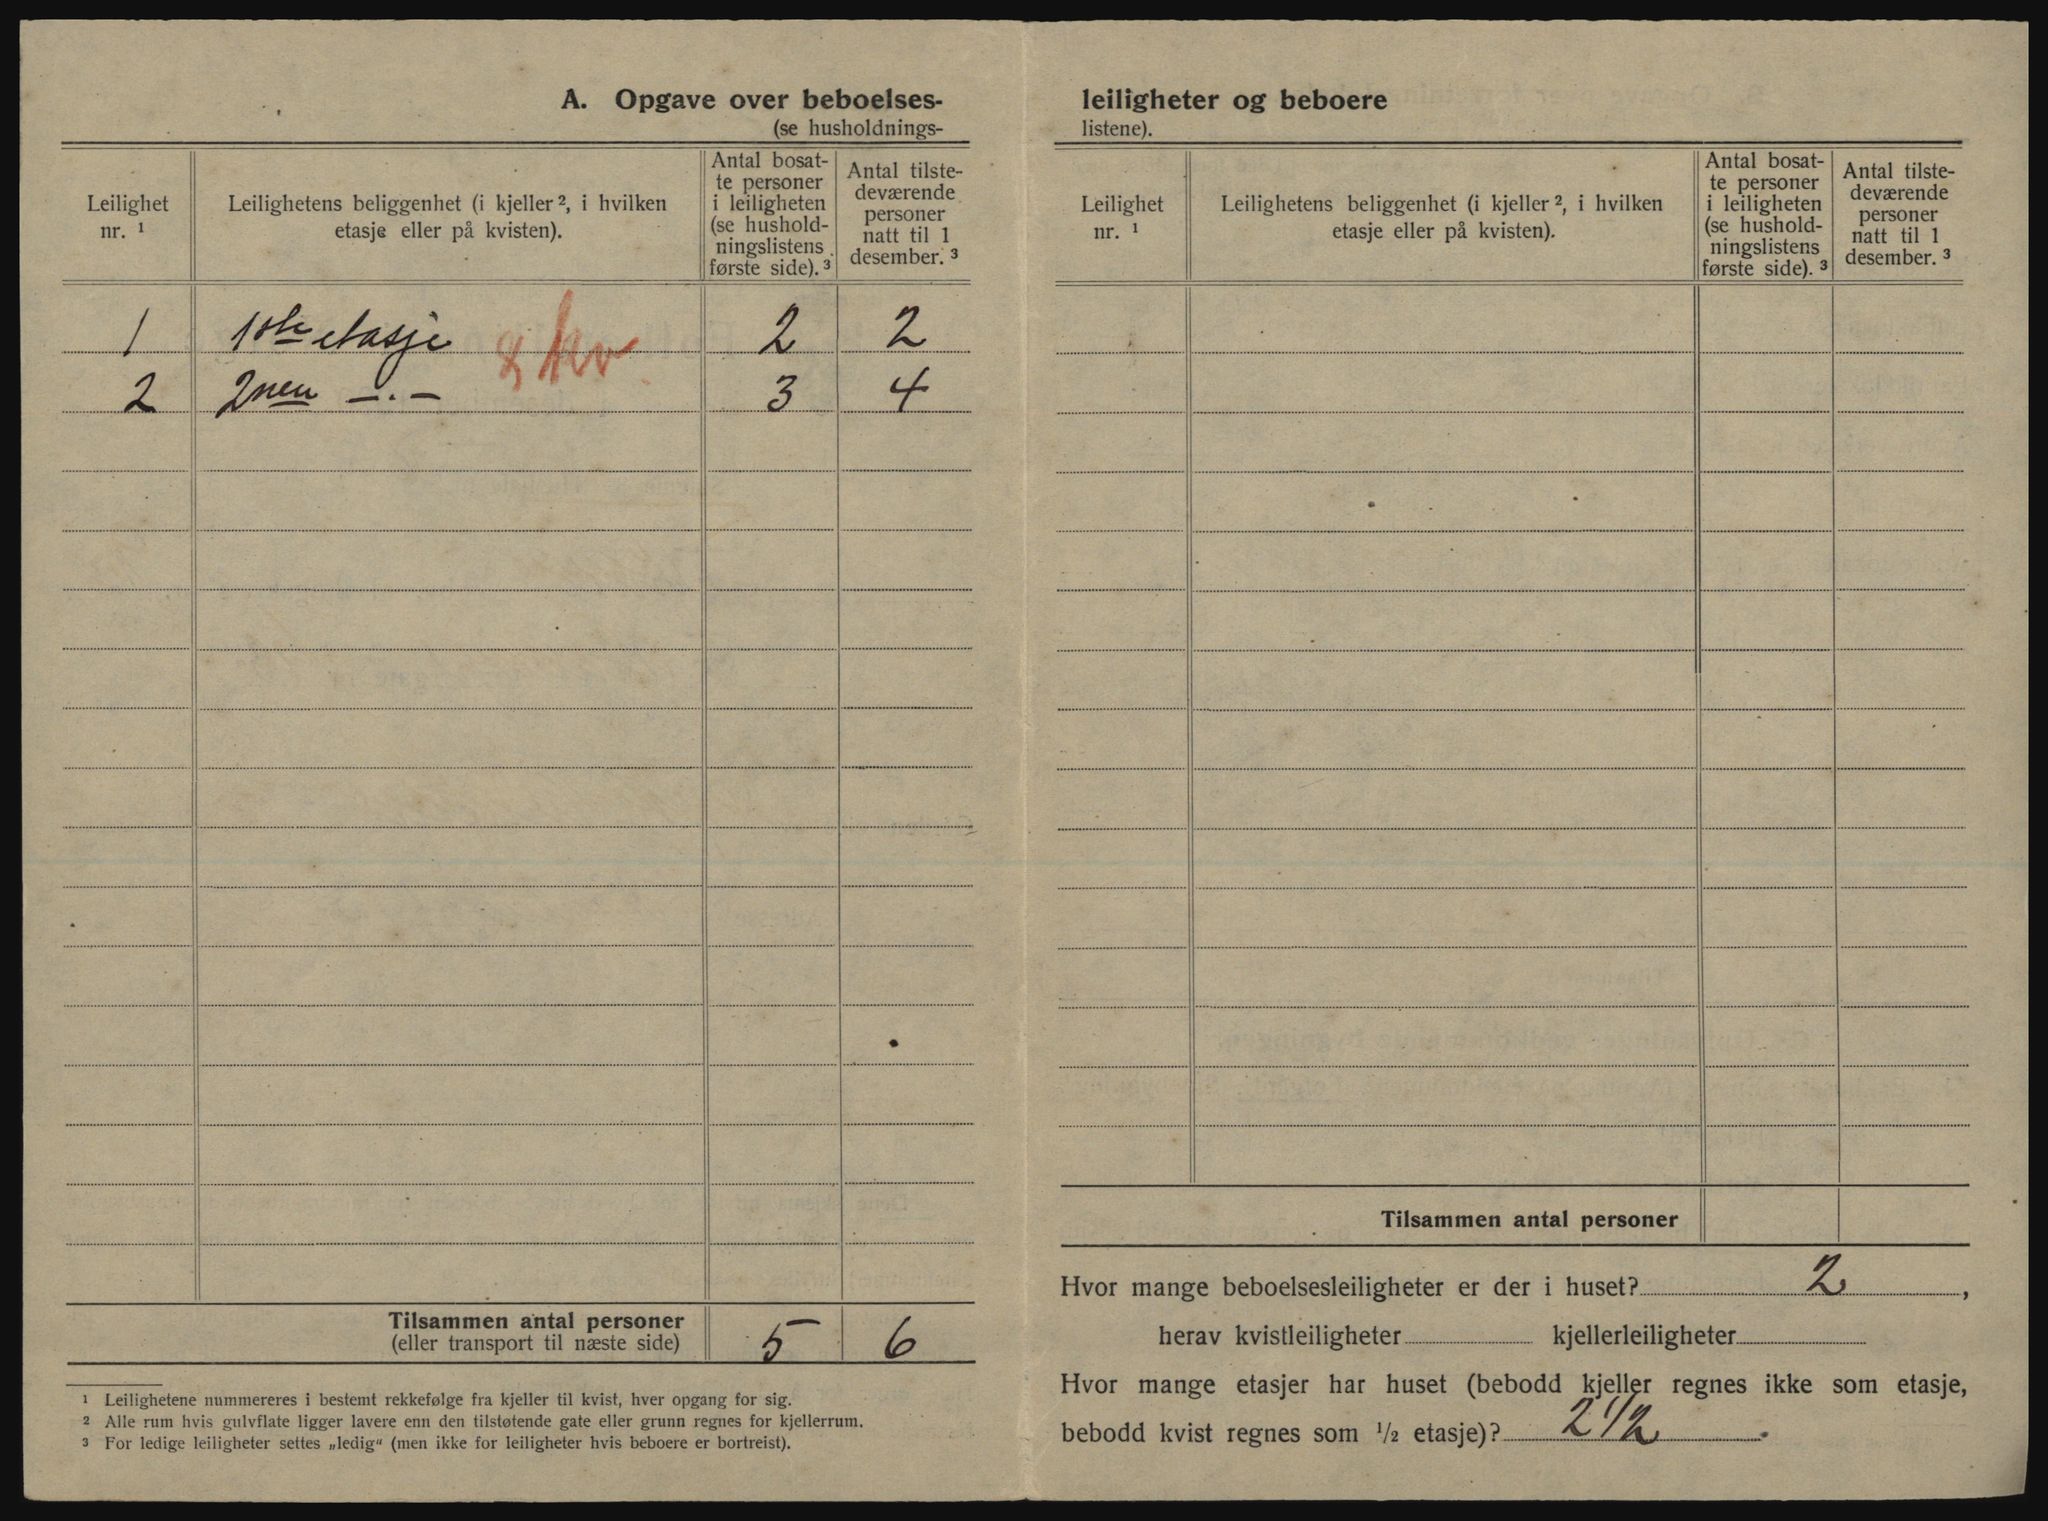 A. Opgave over beboelses-
(se husholdnings-
Leilighet
nr. ¹
Leilighetens beliggenhet (i kjeller ², i hvilken
etasje eller på kvisten).
Antal bosat-
te personer
i leiligheten
(se hushold-
ningslistens
første side). ³
Antal tilste-
deværende
personer
natt til 1
desember. ³
1 1ste etasje 2 2
& kv
2 2nen —.— 3 4
Tilsammen antal personer
(eller transport til næste side) 5 6
¹ Leilighetene nummereres i bestemt rekkefølge fra kjeller til kvist, hver opgang for sig.
² Alle rum hvis gulvflate ligger lavere enn den tilstøtende gate eller grunn regnes for kjellerrum.
³ For ledige leiligheter settes „ledig“ (men ikke for leiligheter hvis beboere er bortreist).
leiligheter og beboere
listene).
Leilighet
nr. ¹
Leilighetens beliggenhet (i kjeller ², i hvilken
etasje eller på kvisten).
Antal bosat-
te personer
i leiligheten
(se hushold-
ningslistens
første side). ³
Antal tilste-
deværende
personer
natt til 1
desember. ³
Tilsammen antal personer
Hvor mange beboelsesleiligheter er der i huset? 2,
herav kvistleiligheter kjellerleiligheter
Hvor mange etasjer har huset (bebodd kjeller regnes ikke som etasje,
bebodd kvist regnes som ½ etasje)? 2 1/2.